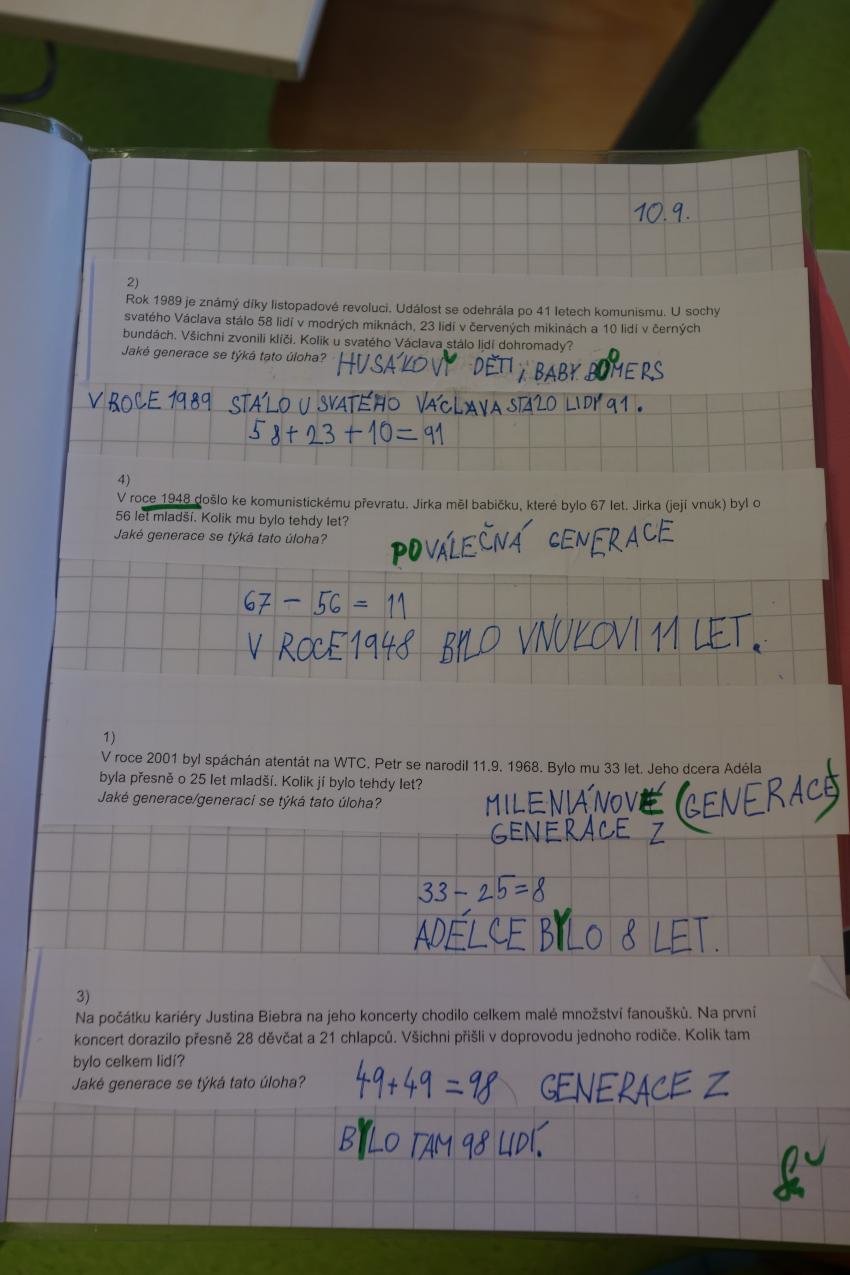 10.9.
2)
Rok 1989 je známý díky listopadové revoluci. Událost se odehrála po 41 letech komunismu. U sochy
svatého Václava stálo 58 lidí v modrých miknách, 23 lidí v červených mikinách a 10 lidí v černých
bundách. Všichni zvonili klíči. Kolik u svatého Václava stálo lidí dohromady?
Jaké generace se týká tato úloha? HUSÁKOVY DĚTI, BABY BOOMERS
V ROCE 1989 STÁLO U SVATÉHO VÁCLAVA STÁLO LIDÍ 91.
58+23+10=91
4)
V roce 1948 došlo ke komunistickému převratu. Jirka měl babičku, které bylo 67 let. Jirka (její vnuk) byl o
56 let mladší. Kolik mu bylo tehdy let?
Jaké generace se týká tato úloha? POVÁLEČNÁ GENERACE
67 - 56 = 11
V ROCE 1948 BYLO VNUKOVI 11 LET.
1)
V roce 2001 byl spáchán atentát na WTC. Petr se narodil 11.9. 1968. Bylo mu 33 let. Jeho dcera Adéla
byla přesně o 25 let mladší. Kolik jí bylo tehdy let?
Jaké generace/generací se týká tato úloha? MILENIÁNOVÉ (GENERACE)
GENERACE Z
33-25=8
ADÉLCE BYLO 8 LET.
3)
Na počátku kariéry Justina Biebra na jeho koncerty chodilo celkem malé množství fanoušků. Na první
koncert dorazilo přesně 28 děvčat a 21 chlapců. Všichni přišli v doprovodu jednoho rodiče. Kolik tam
bylo celkem lidí?
Jaké generace se týká tato úloha? 49+49=98 GENERACE Z
BYLO TAM 98 LIDÍ.